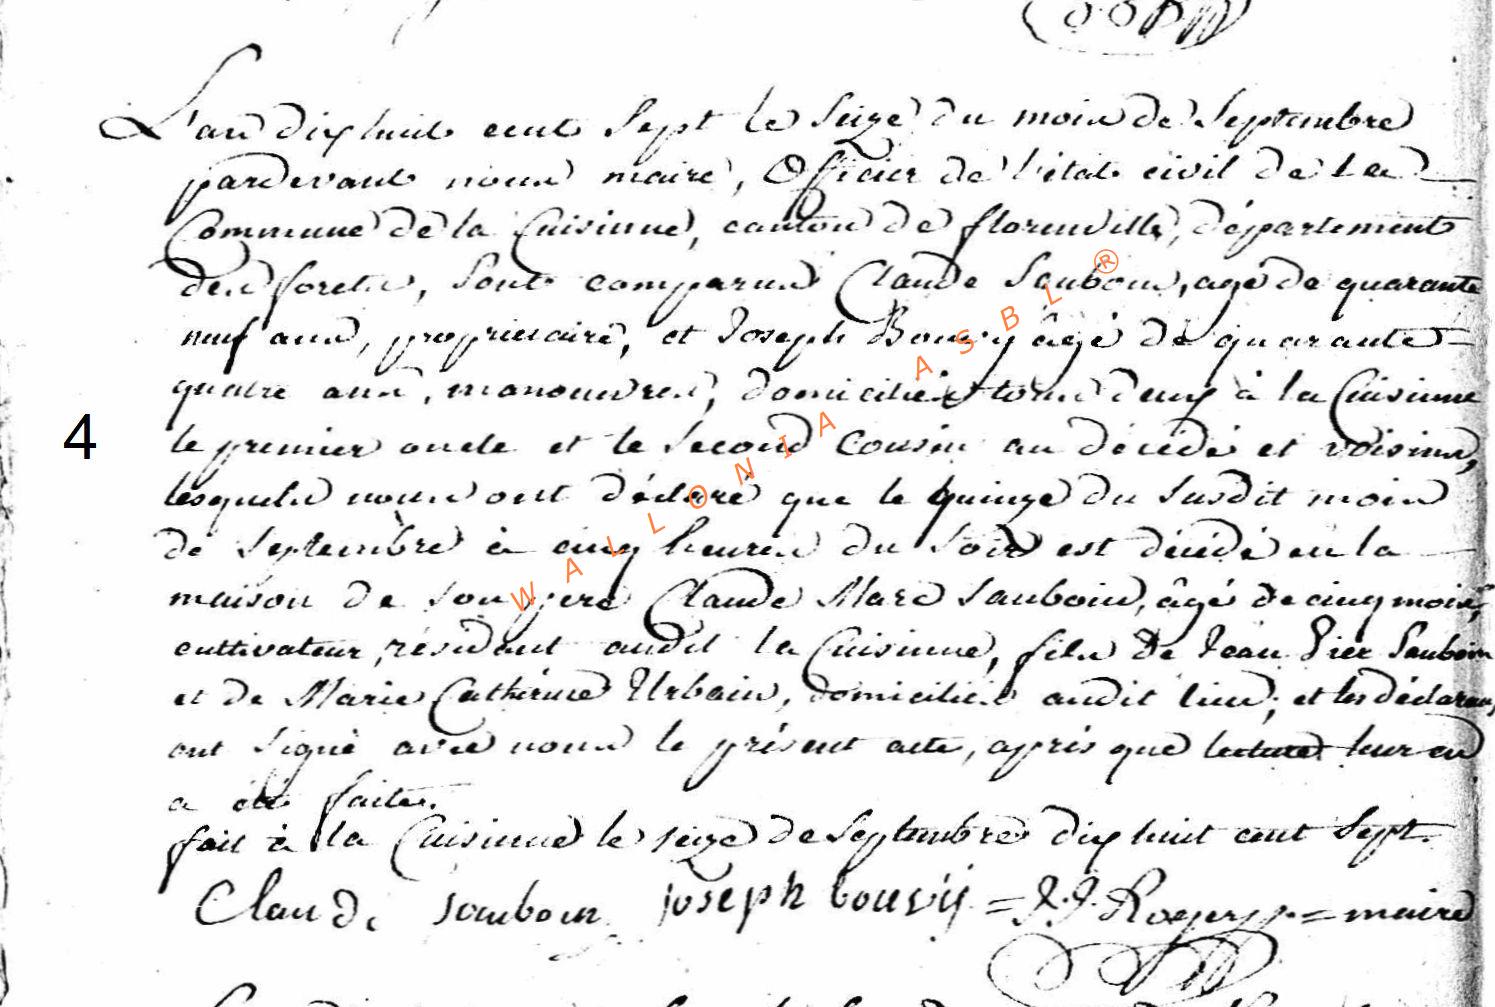 L'an dix huit cent sept le seize du mois de septembre
pardevant nous maire, Officier de l'état civil de la
Commune de la Cuisinne, canton de florenville, département
des forets, sont comparus Claude Sauboin, agé de quarante
neuf ans, proprietaire, et Joseph Bouvy âgé de quarante
quatre ans, manouvres, domiciliés tous deux à la Cuisinne
le premier oncle et le second Cousin au décédé et voisins,
lesquels nous ont déclaré que le quinze du susdit mois
4
de septembre à cinq heures du soir est décédé en la
maison de son pere Claude Marc Sauboin, âgé de cinq mois,
cultivateur, résident audit la Cuisinne, fils de Jean Pier Sauboin
et de Marie Cathérine Urbain, domiciliés audit lieu; et les déclarans
ont signé avec nous le présent acte, après que lecture leur en
a été faite.
fait à la Cuisinne le seize de septembre dix huit cent sept.
Claude Sauboin Joseph bouvÿ = J. J. Rogers = maire
WALLONIA ASBL ®